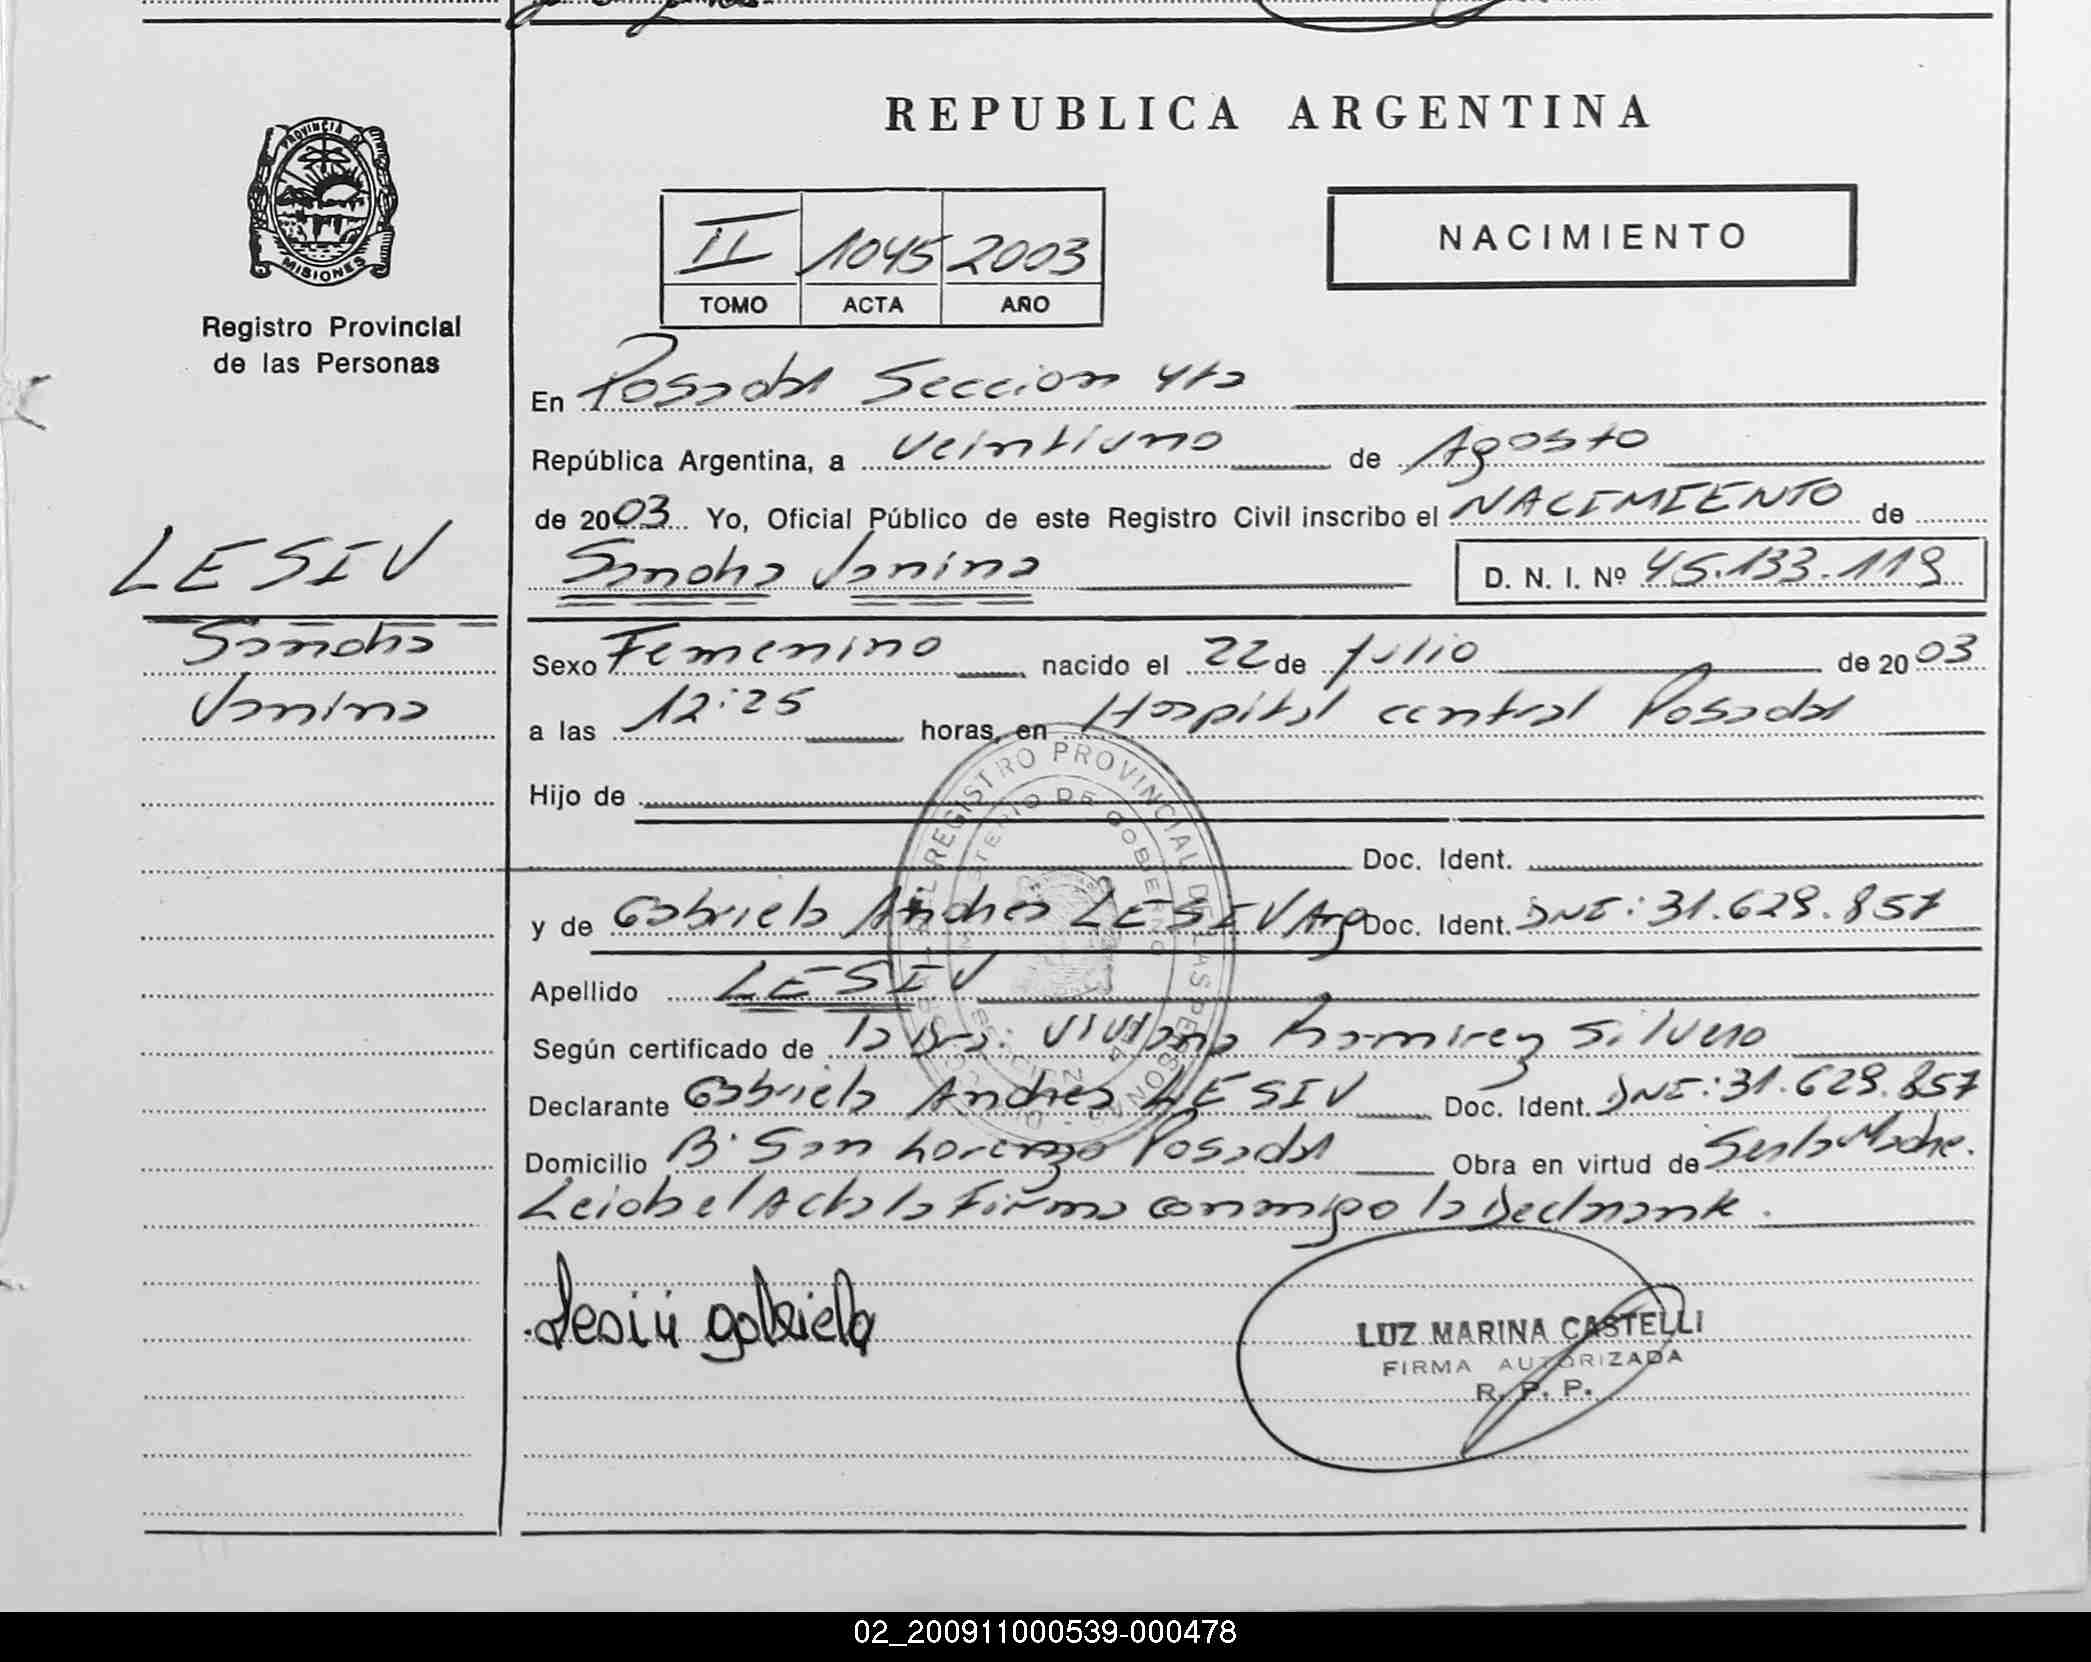 REPUBLICA ARGENTINA
PROVINCIA DE
MISIONES
Registro Provincial
de las Personas
II 1045 2003
TOMO ACTA AÑO
NACIMIENTO
En Posadas Seccion 4ta
República Argentina, a veintiuno de Agosto
de 2003 Yo, Oficial Público de este Registro Civil inscribo el NACIMIENTO de
Sandra Janina D. N. I. Nº 45.133.119
LESIV
Sandra
Janina
Sexo Femenino nacido el 22 de julio de 2003
a las 12:25 horas, en Hospital central Posadas
Hijo de
Doc. Ident.
y de Gabriela Andrea LESIV Arg Doc. Ident. DNI: 31.629.857
Apellido LESIV
Según certificado de la Dra. Viviana Ramirez Silvero
Declarante Gabriela Andrea LESIV Doc. Ident. DNI: 31.629.857
Domicilio Bº San Lorenzo Posadas Obra en virtud de Ser la Madre.
Leida el Acta la Firma conmigo la Declarante.
REGISTRO PROVINCIAL DE LAS PERSONAS
MINISTERIO DE GOBIERNO
Lesiv gabriela
LUZ MARINA CASTELLI
FIRMA AUTORIZADA
R. P. P.
02_200911000539-000478